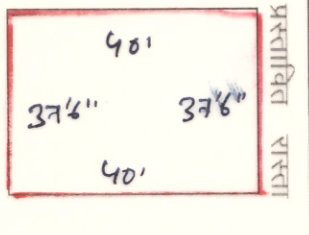 40'
37'6" 37'6"
40'
प्रस्तावित रास्ता